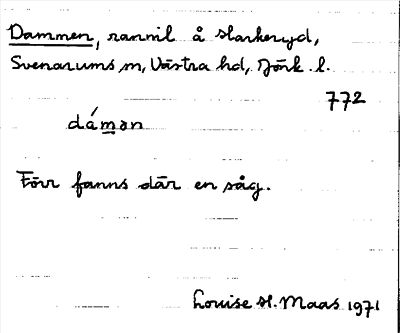 Dammen, rannil å Starkeryd,
Svenarums sn, Västra hd, Jönk. l.
772
dámən
Förr fanns där en såg.
Louise H. Maas 1971